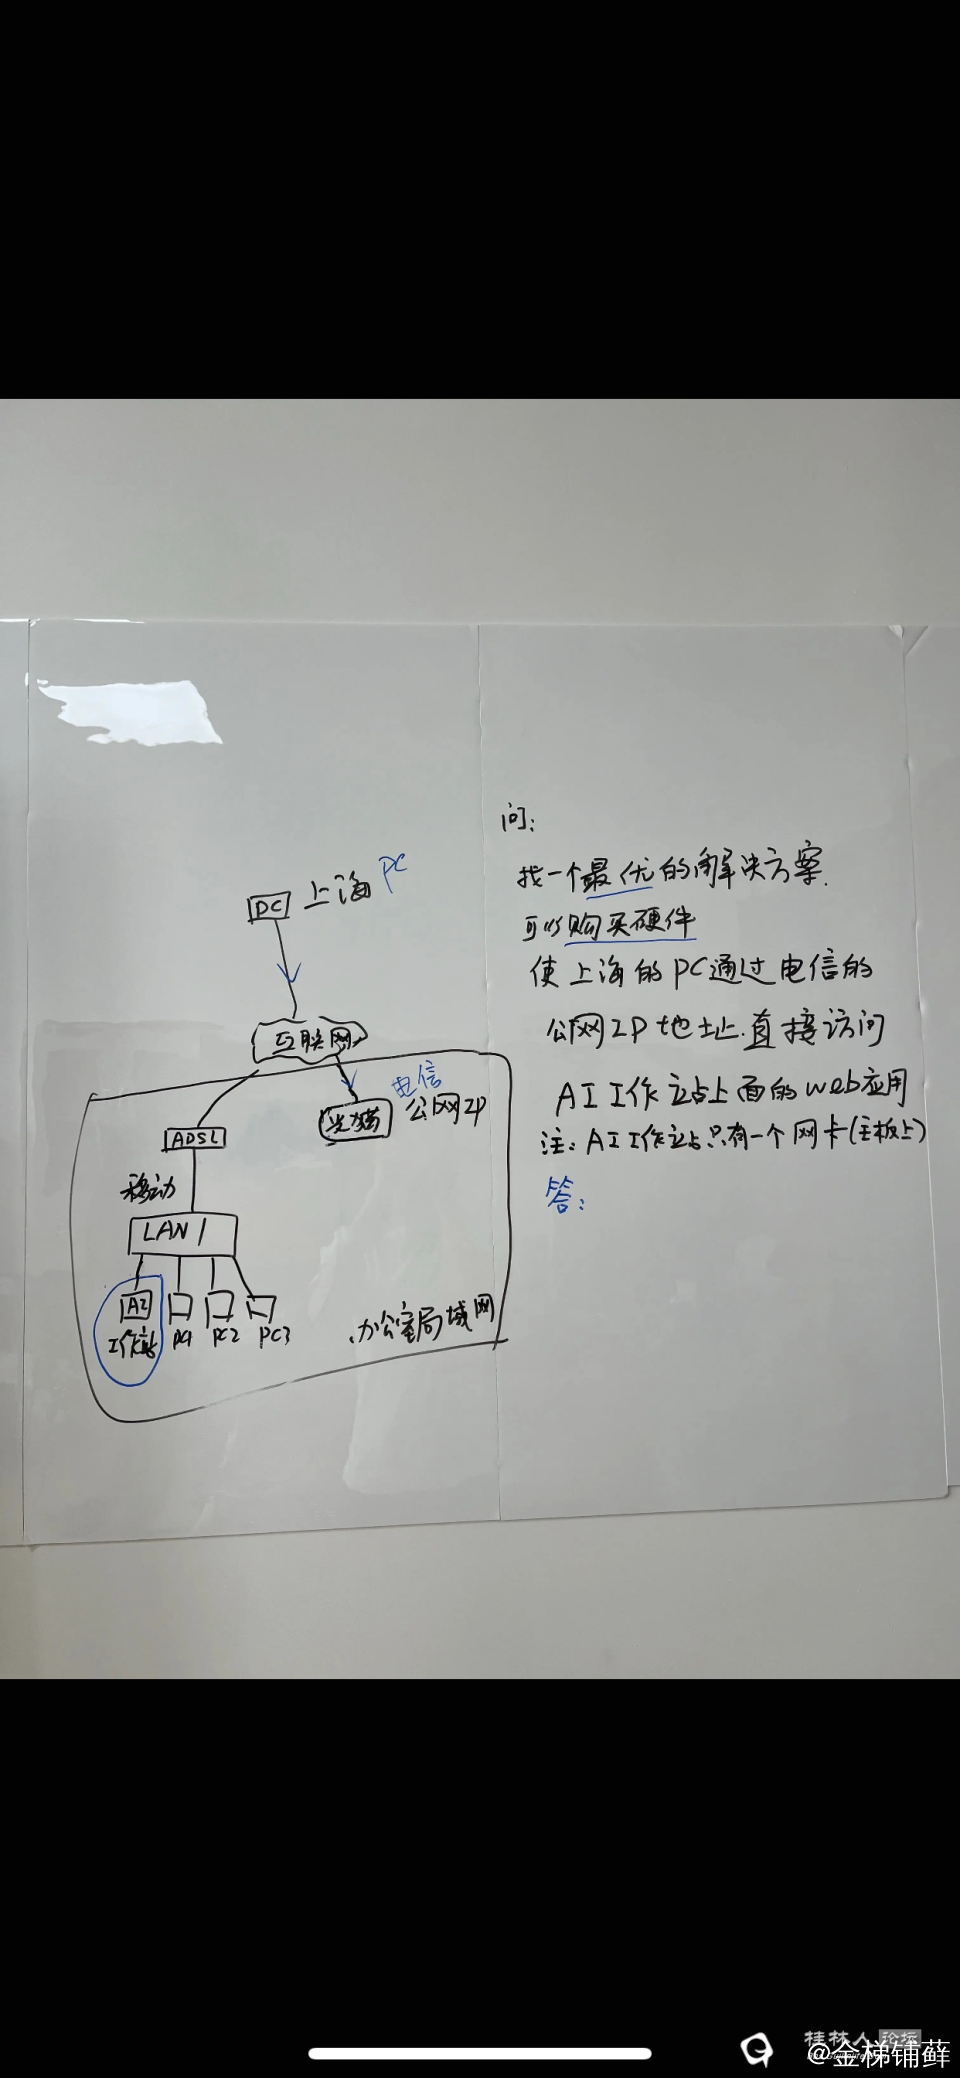 PC 上海PC
互联网
电信
光猫 公网IP
ADSL
移动
LAN 1
AI
工作站 PC1 PC2 PC3
办公室局域网
问:
找一个最优的解决方案.
可以购买硬件
使上海的PC通过电信的
公网IP地址.直接访问
AI工作站上面的web应用
注:AI工作站只有一个网卡(主板上)
答:
桂林人论坛
@金梯铺藓